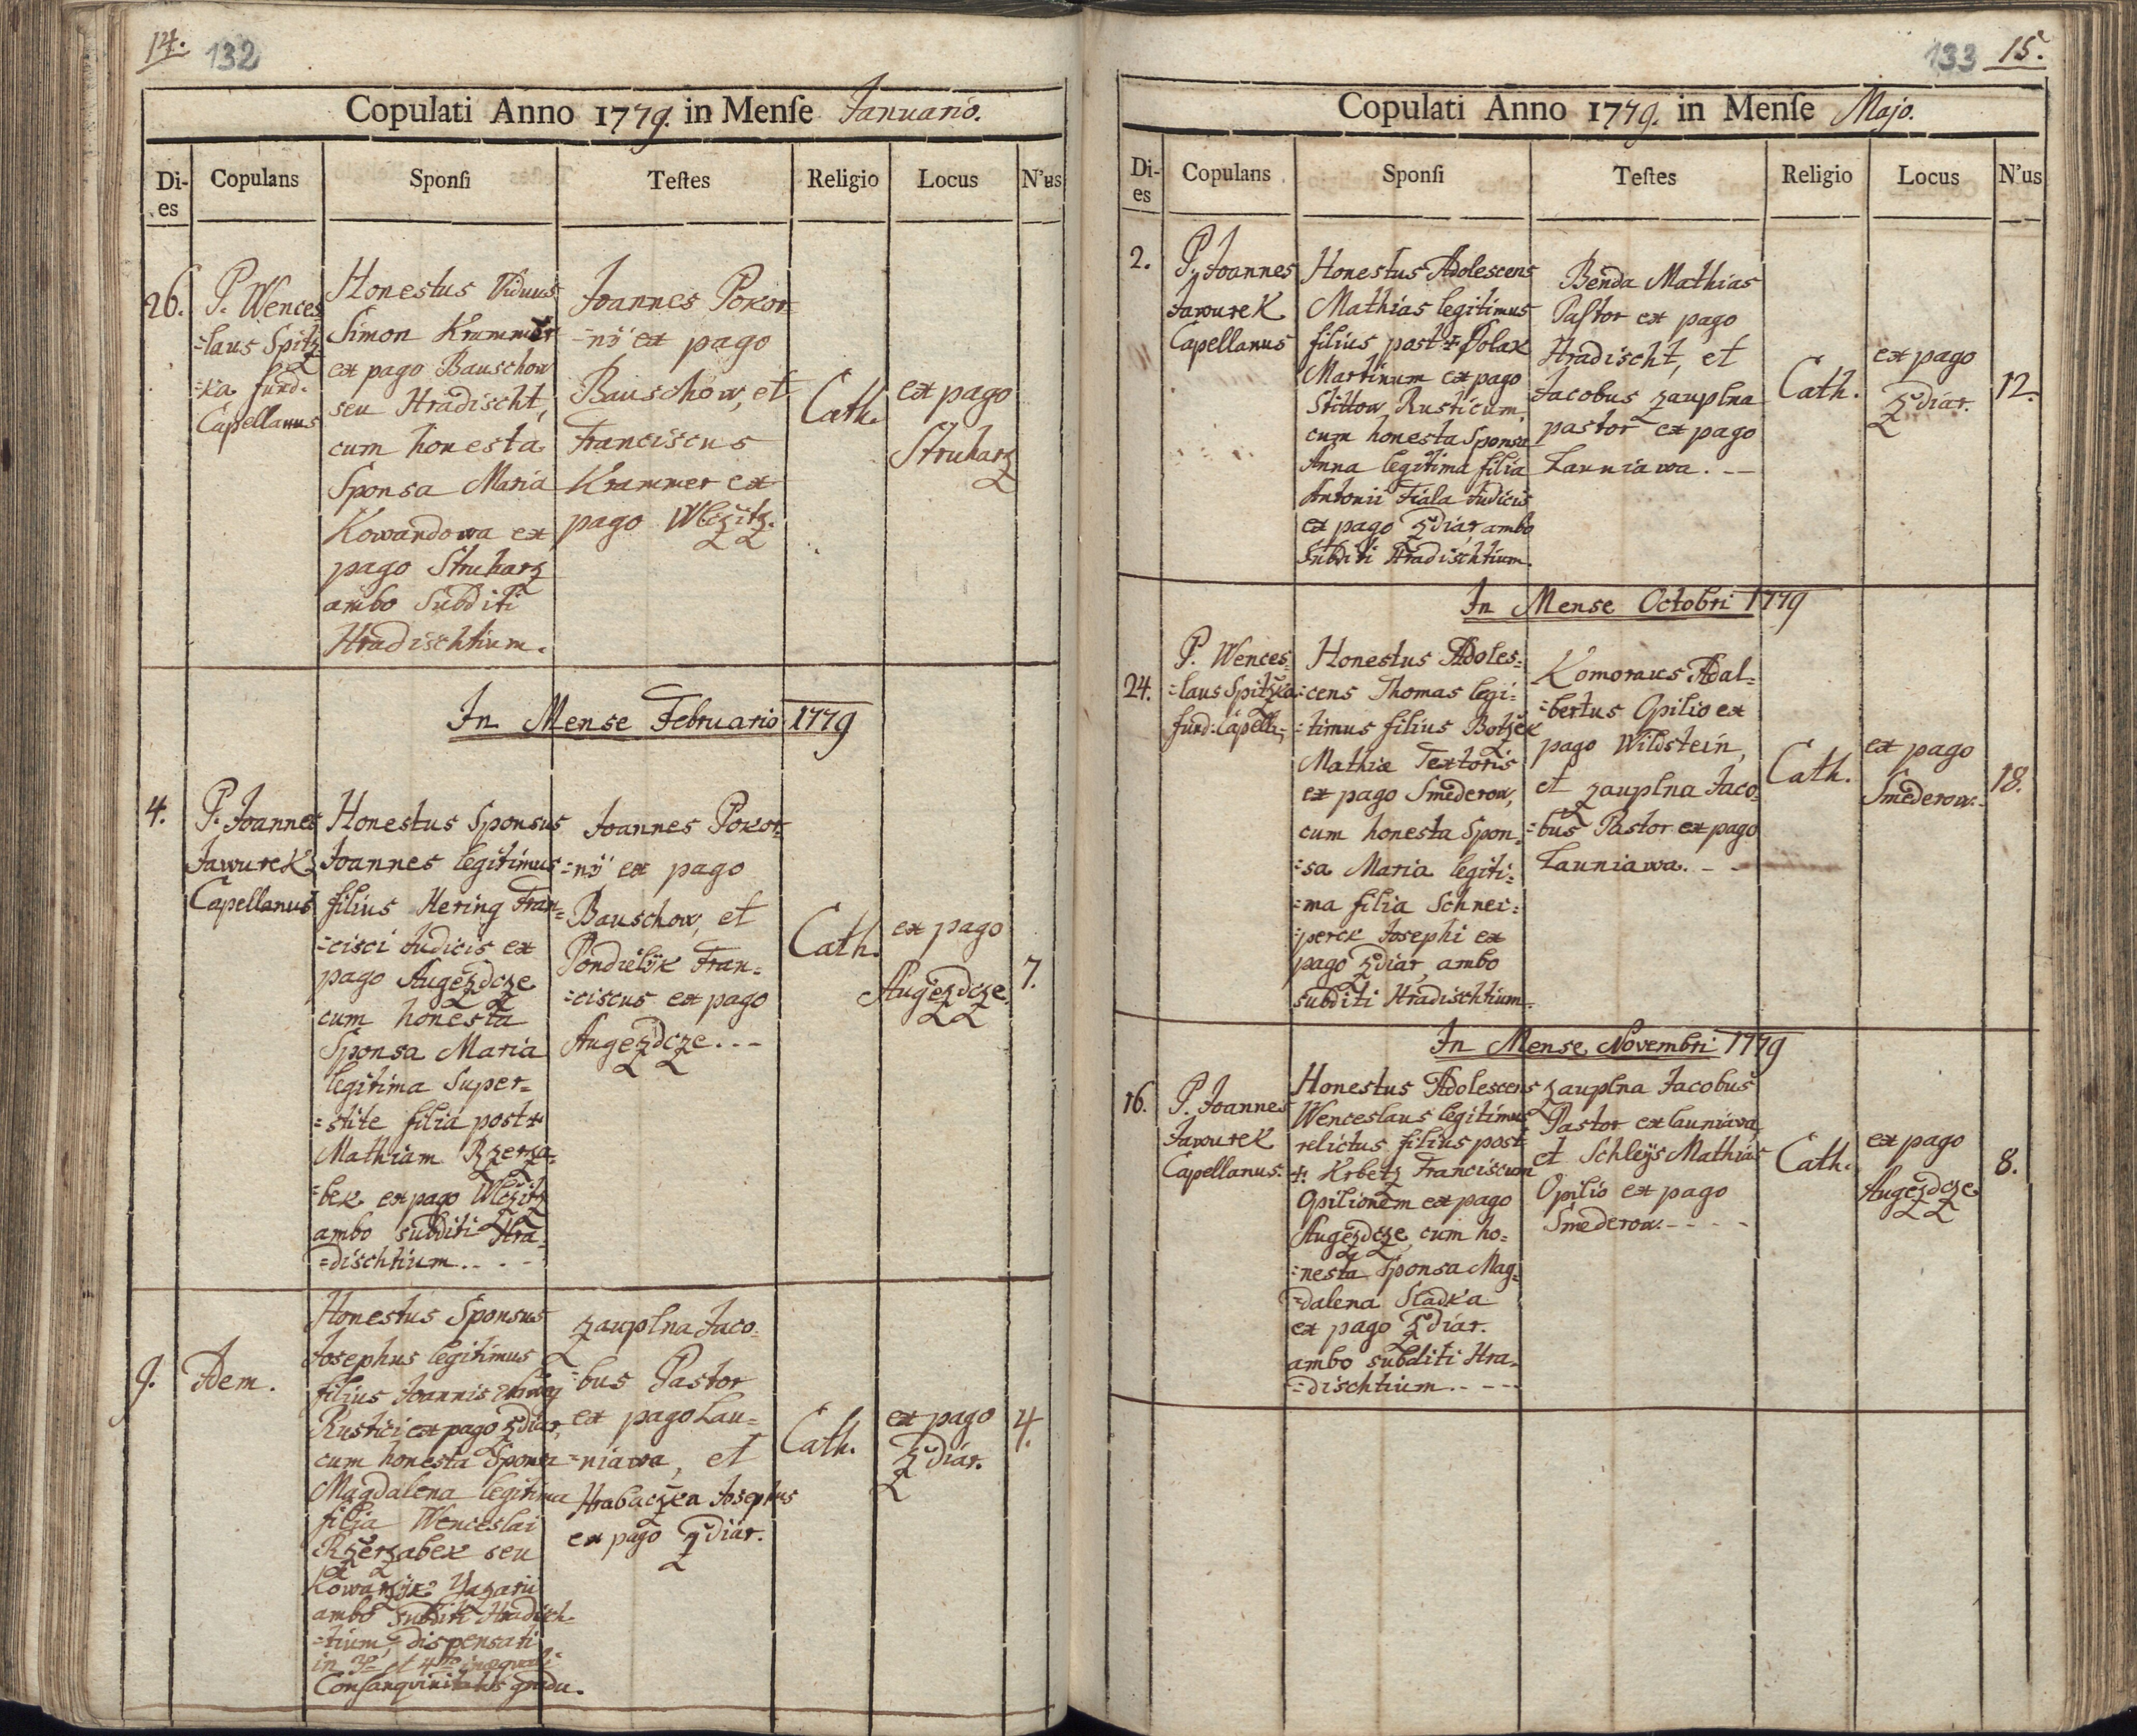 14. 132
Copulati Anno 1779. in Menſe Januario.
Di-es Copulans Sponſi Teſtes Religio Locus N'us
26.
P. Wences
=laus Spitz
=ka fund.
Capellanus
Honestus Viduus
Simon Krammer
ex pago Bauschow
seu Hradischt,
cum honesta
Sponsa Maria
Kowandowa ex
pago Struharz
ambo Subditi
Hradischtium.
Joannes Pokor=
=ný ex pago
Bauschow, et
Franciscus
Krammer ex
pago Wlczitz.
Cath.
ex pago
Struharz
In Mense Februario 1779
4.
P. Joannes
Jawurek
Capellanus
Honestus Sponsus
Joannes legitimus
filius Hering Fran=
=cisci Judicis ex
pago Augezdcze
cum honesta
Sponsa Maria
legitima Super=
=stite filia post †
Mathiam Rzerza=
=bek ex pago Wlczitz
ambo subditi Hra=
=dischtium. . . -
Joannes Pokor=
=ný ex pago
Bauschow, et
Pondielik Fran=
=ciscus ex pago
Augezdcze. - -
Cath.
ex pago
Augezdcze.
7.
9.
Idem.
Honestus Sponsus
Josephus legitimus
filius Joannis
Rustici ex pago Zdiar,
cum honesta Sponsa
Magdalena legitima
filia Wenceslai
Rzerzabek seu
Kowarzik
ambo Subditi Hradisch=
=tium, dispensati
in 3º et 4to inæquali
Consanqvinitatis gradu.
Zauplna Jaco=
=bus Pastor
ex pago Lau=
=niawa, et
Hrabaczka Josephus
ex pago Zdiar.
Cath.
ex pago
Zdiar.
4.
133 15.
Copulati Anno 1779. in Menſe Majo.
Di-es Copulans Sponſi Teſtes Religio Locus N'us
2.
P. Joannes
Jawurek
Capellanus
Honestus Adolescens
Mathias legitimus
filius post † Polak
Martinum ex pago
Stittow Rusticum,
cum honesta Sponsa
Anna legitima filia
Antonii Fiala Judicis
ex pago Zdiar, ambo
Subditi Hradischtium.
Benda Mathias
Pastor ex pago
Hradischt, et
Jacobus Zauplna
pastor ex pago
Launiawa. - -
Cath.
ex pago
Zdiar.
12.
In Mense Octobri 1779
24.
P. Wences=
=laus Spitzka
fund: Capell:
Honestus Adoles=
=cens Thomas legi=
=timus filius Botzek
Mathiæ Textoris
ex pago Smederow,
cum honesta Spon=
=sa Maria legiti=
=ma filia Schnei=
=perck Josephi ex
pago Zdiar, ambo
subditi Hradischtium.
Komoraus Adal=
=bertus Opilio ex
pago Wildstein,
et Zauplna Jaco=
=bus Pastor ex pago
Launiawa. - -
Cath.
ex pago
Smederow.
18.
In Mense Novembri 1779
16.
P. Joannes
Jawurek
Capellanus.
Honestus Adolescens
Wenceslaus legitimus
relictus filius post
†. Krbetz Franciscum
Opilionem ex pago
Augezdcze, cum ho=
=nesta Sponsa Mag=
=dalena Sladka
ex pago Zdiar.
ambo subditi Hra=
=dischtium. - - -
Zauplna Jacobus
Pastor ex launiawa
et Schleys Mathias
Opilio ex pago
Smederow. - - - -
Cath.
ex pago
Augezdcze
8.